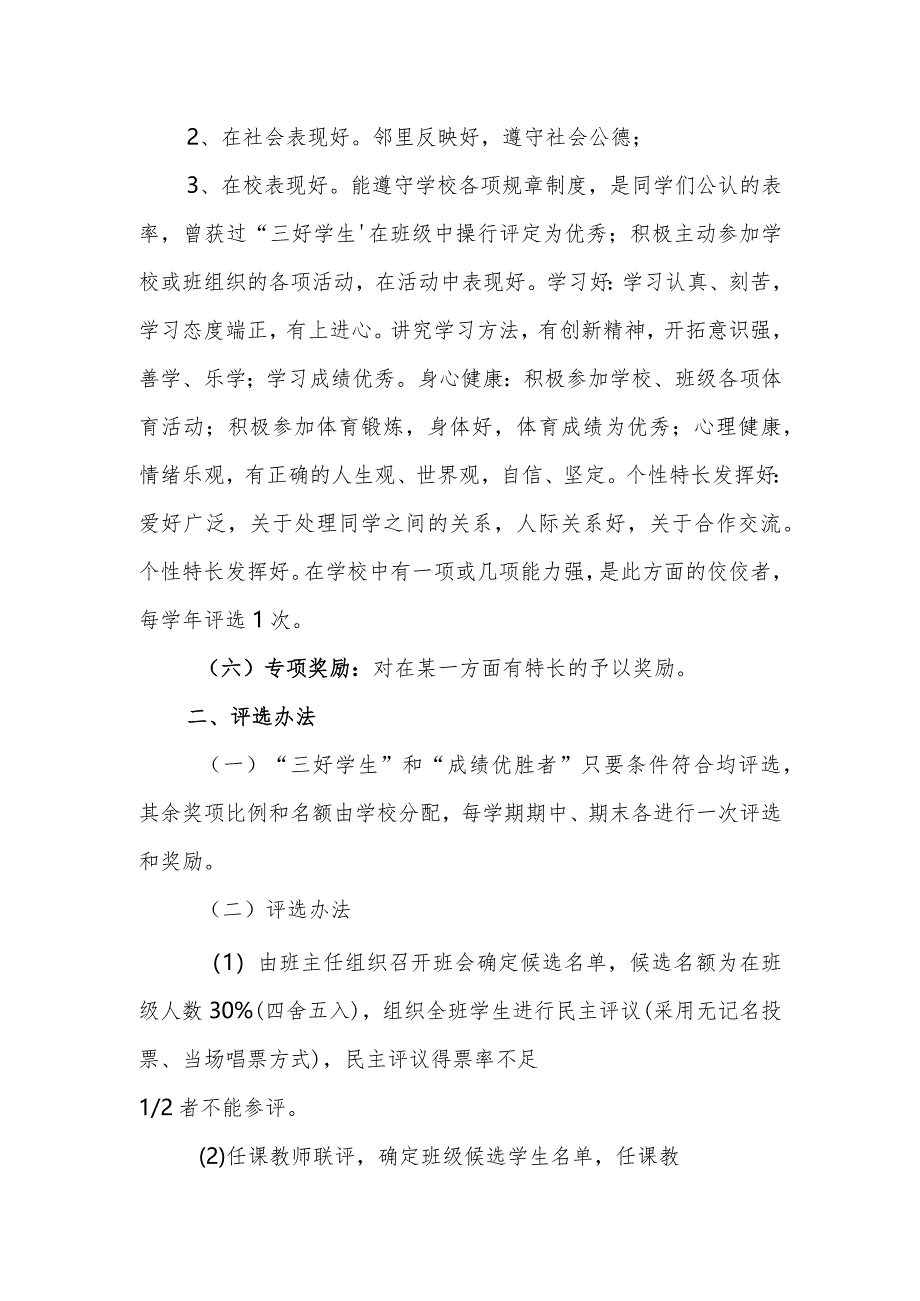 2、在社会表现好。邻里反映好，遵守社会公德；
3、在校表现好。能遵守学校各项规章制度，是同学们公认的表
率，曾获过“三好学生'在班级中操行评定为优秀；积极主动参加学
校或班组织的各项活动，在活动中表现好。学习好：学习认真、刻苦，
学习态度端正，有上进心。讲究学习方法，有创新精神，开拓意识强，
善学、乐学；学习成绩优秀。身心健康：积极参加学校、班级各项体
育活动；积极参加体育锻炼，身体好，体育成绩为优秀；心理健康，
情绪乐观，有正确的人生观、世界观，自信、坚定。个性特长发挥好：
爱好广泛，关于处理同学之间的关系，人际关系好，关于合作交流。
个性特长发挥好。在学校中有一项或几项能力强，是此方面的佼佼者，
每学年评选1次。
（六）专项奖励：对在某一方面有特长的予以奖励。
二、评选办法
（一）“三好学生”和“成绩优胜者”只要条件符合均评选，
其余奖项比例和名额由学校分配，每学期期中、期末各进行一次评选
和奖励。
（二）评选办法
(1) 由班主任组织召开班会确定候选名单，候选名额为在班
级人数30%(四舍五入)，组织全班学生进行民主评议(采用无记名投
票、当场唱票方式)，民主评议得票率不足
1/2者不能参评。
(2)任课教师联评，确定班级候选学生名单，任课教